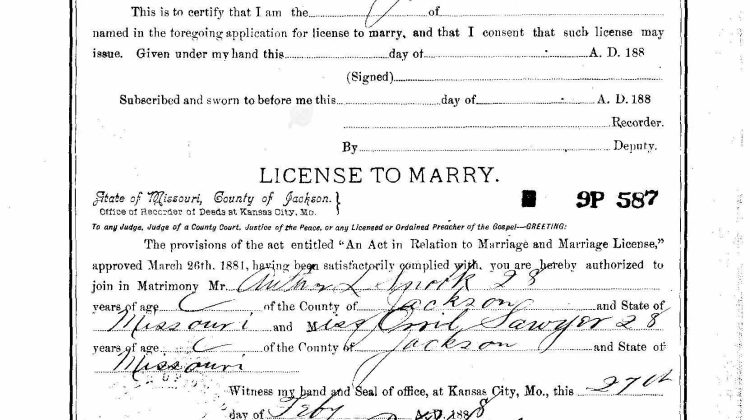 This is to certify that I am the of
named in the foregoing application for license to marry, and that I consent that such license may
issue. Given under my hand this day of A. D. 188
(Signed)
Subscribed and sworn to before me this day of A. D. 188
Recorder.
By Deputy.
LICENSE TO MARRY.
State of Missouri, County of Jackson. }
Office of Recorder of Deeds at Kansas City, Mo.
9P 587
To any Judge, Judge of a County Court, Justice of the Peace, or any Licensed or Ordained Preacher of the Gospel—GREETING:
The provisions of the act entitled "An Act in Relation to Marriage and Marriage License,"
approved March 26th. 1881, having been satisfactorily complied with, you are hereby authorized to
join in Matrimony Mr. Arthur L 28
years of age C of the County of Jackson and State of
Missouri and Miss Emil Sawyer 28
years of age C of the County of Jackson and State of
Missouri
Witness my hand and Seal of office, at Kansas City, Mo., this 27th
day of Feby A.D. 1888